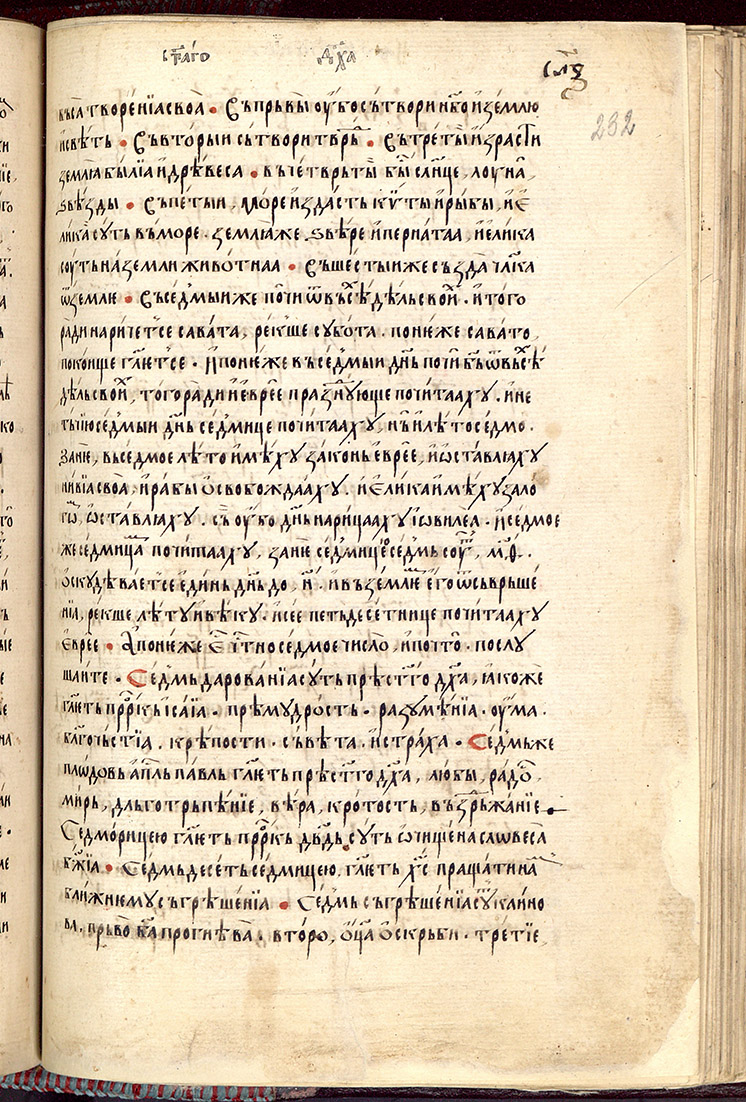 ст҃аго дх҃а
сл҃в
232
въсꙗ творенїа своа • Съ првы оубо сътвори нб҃о и землю
и свѣть • Съ вторыи сьтвори твръ • Съ третыи израсти
землꙗ былїа и дрѣвеса • въ четврьты бы сл҃нце, лоуна,
ѕвѣзды • Съ петыи, море издасть киты и рыбы, и е
лика суть въ море . землꙗ же ѕвѣре и пернатаа, и елика
соуть на земли животнаа • Съ шестыи же създа чл҃ка
ѿ землѥ • Съ седмыи же почи ѿ въсѣ дѣль свои . и того
ради наричетсе савата, рекше субота . понеже савато,
покоище гл҃етсе . и понеже въ седмыи днь почи бь ѿ въсѣ
дѣль свои, того ради и еврее празнующе почитааху . и не
тъкїю седмыи днь седмице почитааху, нь и лѣто седмо .
зане, въ седмое лѣто имѣху законь еврее, и ѡставлꙗху
нивїа своа, и рабы освобождааху . и елика имѣху зало
гы, ѡставлꙗху . съ оубо днь нарицааху іѡвилеѧ . и седмое
же седмица почитааху, зане седмицею седмь соу, м҃ѳ .
оскудѣваетсе единь днь до, н҃ . и въ землѥ его ѿ съврьше
нїа, рекше лѣту и вѣку . и сее петьдесетнице почитааху
еврее • А понеже е ч҃тно седмое число, и почто . послу
шаите . Седмь дарованїа суть прѣст҃го дх҃а, ꙗкоже
гл҃еть прр҃кь исаїа . прѣмудрость . разумѣнїа . оума .
бл҃гочьстїа . крѣпости . съвѣта . и страха . Седмь же
плѡдовь ап҃ль павль гл҃еть прѣст҃го дх҃а, любы, радо,
мирь, дльготрьпѣнїе, вѣра, кротость, въздрьжанїе •
Седморицею гл҃еть прр҃кь дв҃дь, суть ѡчищена словеса
бж҃їа • Седмьдесеть седмицею, гл҃еть х҃с пращати на
ближнему съгрѣшенїа • Седмь съгрѣшенїа сьу каино
ва, прьво б҃а прогнѣва . второ, оц҃а оскрьби . третїе,